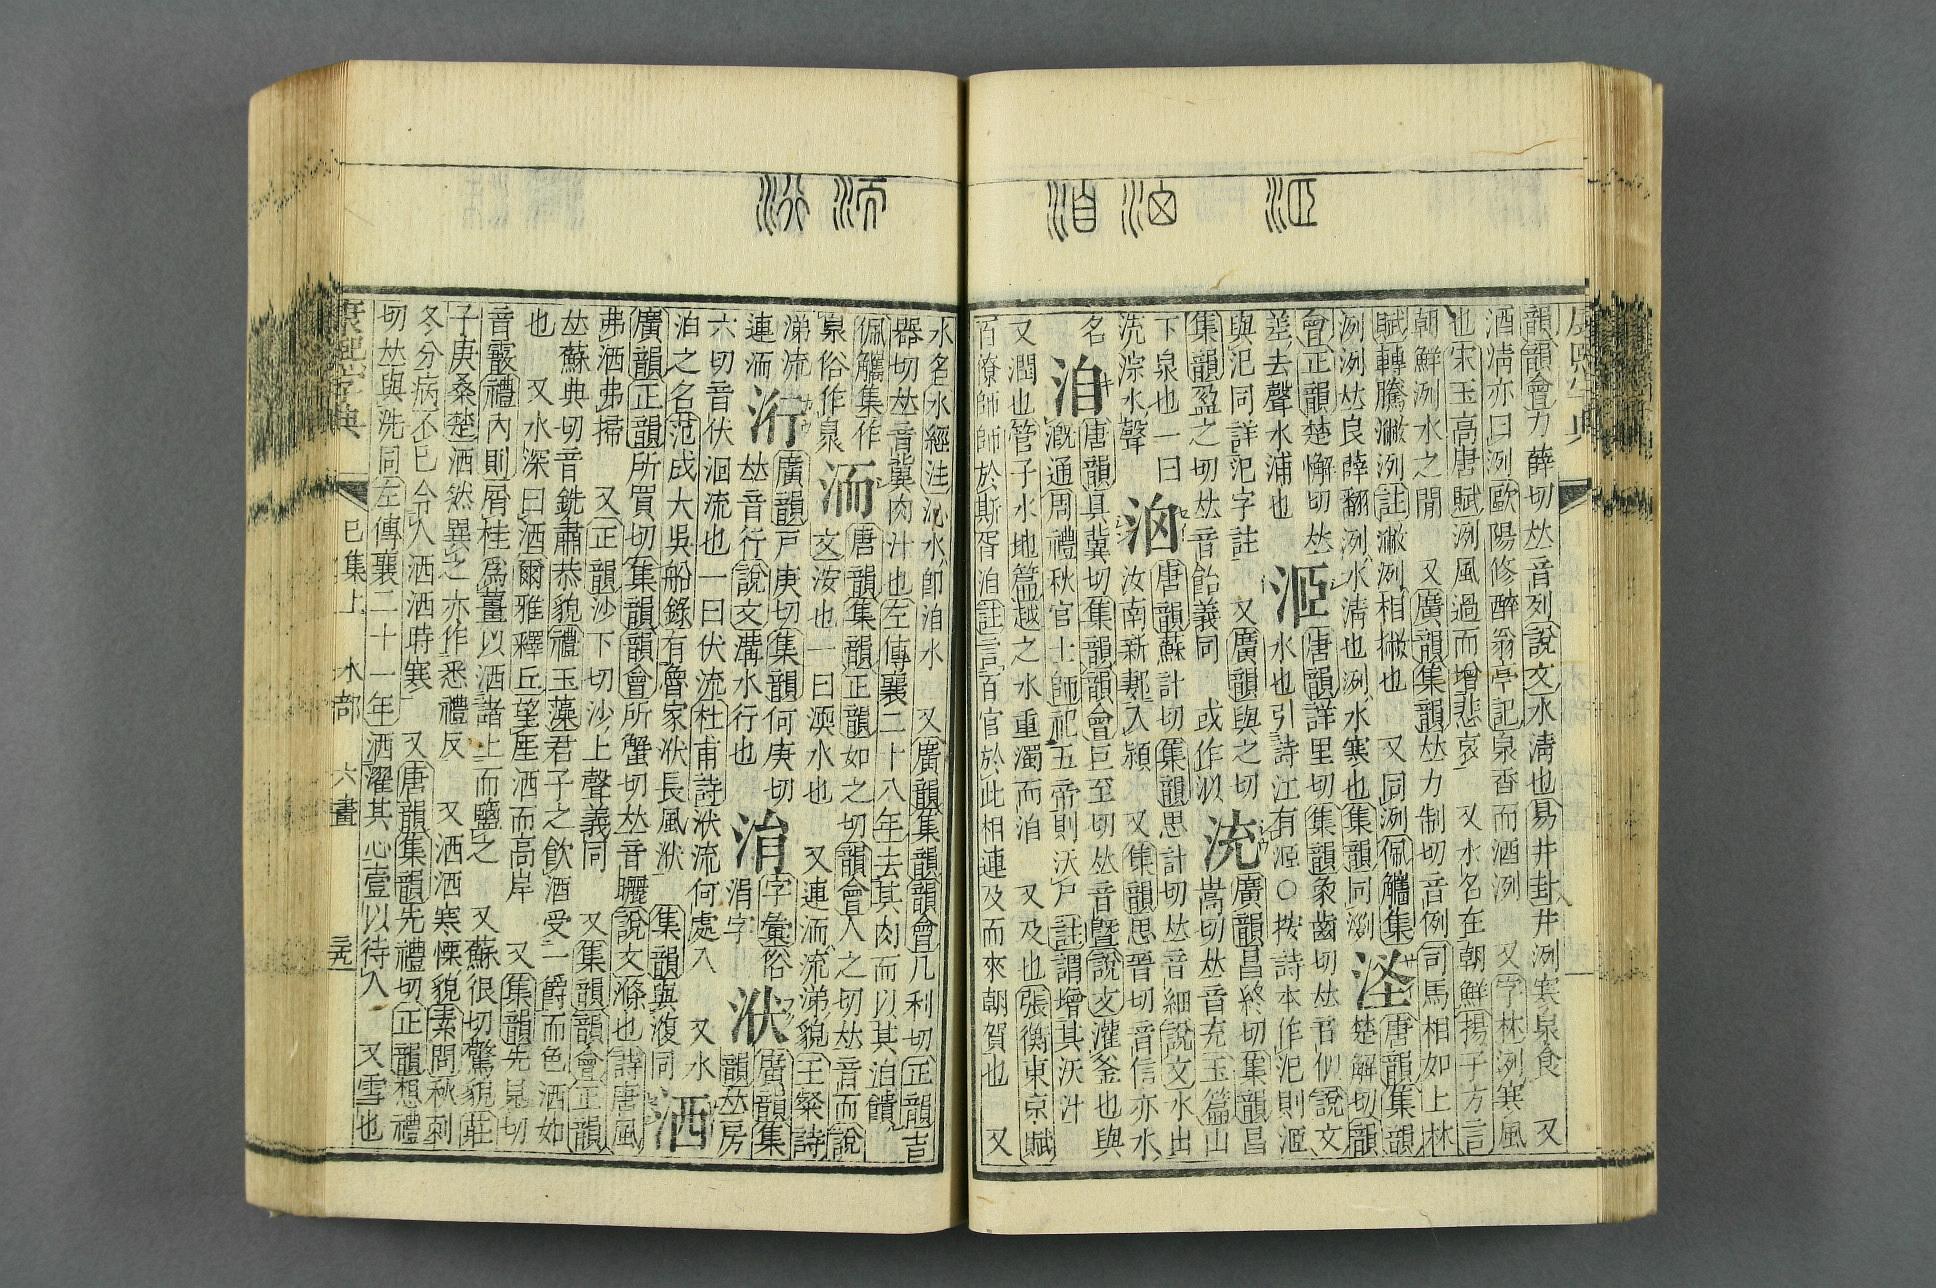 康熙字典
韻韻會力薛切𠀤音列說文水淸也易井卦井洌寒泉食 又
酒淸亦曰洌歐陽修醉翁亭記泉香而酒洌 又字林洌寒風
也宋玉高唐賦洌風過而增悲哀 又水名在朝鮮揚子方言
朝鮮洌水之閒 又廣韻集韻𠀤力制切音例司馬相如上林
賦轉騰潎洌註潎洌相撇也 又同浰佩觿集 唐韻集韻
洌浰𠀤良薛翻洌水淸也浰水寒也集韻同浰 楚解切韻
會正韻楚懈切𠀤 洍 唐韻詳里切集韻象齒切𠀤音似說文
差去聲水浦也 水也引詩江有洍○按詩本作汜則洍
與汜同詳汜字註 又廣韻與之切 㳘 廣韻昌終切集韻昌
集韻盈之切𠀤音飴義同 或作㳑 嵩切𠀤音充玉篇山
下泉也一曰 唐韻蘇計切集韻思計切𠀤音細說文水出
㳘淙水聲 汝南新郪入潁水 又集韻思晉切音信亦水
名 洎 唐韻具冀切集韻韻會巨至切𠀤音曁說文灌釜也與
漑通周禮秋官士師祀五帝則沃尸註謂增其沃汁
又潤也管子水地篇越之水重濁而洎 又及也張衡東京賦
百僚師師於斯胥洎註言百官於此相連及而來朝賀也 又
水名水經注沁水卽洎水 又廣韻集韻韻會几利切正韻吉
器切𠀤音冀肉汁也左傳襄二十八年去其肉而以其洎饋
佩觿集作 洏 唐韻集韻正韻如之切韻會人之切𠀤音而說
泉俗作㬌 文洝也一曰渜水也 又連洏流涕貌王粲詩
涕流 洐 廣韻戸庚切集韻何庚切 㳙 字彙俗 洑 廣韻集
連洏 𠀤音行說文溝水行也 涓字 韻𠀤房
六切音伏洄流也一曰伏流杜甫詩洑流何處入 又水
洎之名范成大吳船錄有魯家洑長風洑 集韻與澓同 洒
廣韻正韻所買切集韻韻會所蟹切𠀤音曬說文滌也詩唐風
弗洒弗掃 又正韻沙下切沙上聲義同 又集韻韻會正韻
𠀤蘇典切音銑肅恭貌禮玉藻君子之飮酒受一爵而色洒如
也 又水深曰洒爾雅釋丘望厓洒而高岸 又集韻先見切
音霰禮內則屑桂爲薑以洒諸上而鹽之 又蘇很切驚貌莊
子庚桑楚洒然異之亦作悉禮反 又洒洒寒慄貌素問秋刺
冬分病不已令人洒洒時寒 又唐韻集韻先禮切正韻想禮
切𠀤與洗同左傳襄二十一年洒濯其心壹以待人 又雪也
康熙字典 巳集上 水部 六畫